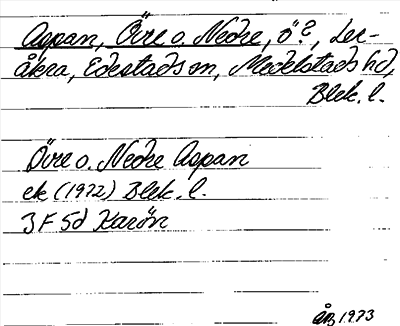 Aspan, Övre o. Nedre, ö?, Ler-
åkra, Edestads sn, Medelstads hd,
Blek. l.
Övre o. Nedre Aspan
ek (1972) Blek. l.
3F 5d Karön
1973